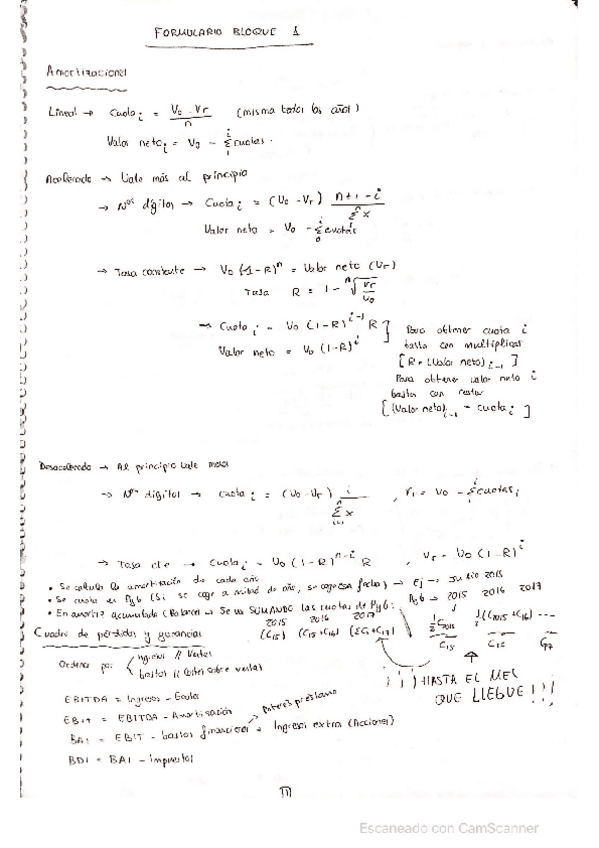 FORMULARIO BLOQUE 1
Amortizaciones
Lineal → Cuota i = (V0 - Vr) / n (misma todos los años)
Valor neto i = V0 - Σ cuotas.
Acelerado → Vale más al principio
→ Nos dígitos → Cuota i = (V0 - Vr) (n+1-i) / Σx
Valor neto = V0 - Σ cuotas
→ Tasa constante → V0 (1-R)^n = Valor neto (Vr)
Tasa R = 1 - ⁿ√(Vr/V0)
→ Cuota i = V0 (1-R)^(i-1) R
Valor neto = V0 (1-R)^i
Para obtener cuota i
basta con multiplicar
[R * (Valor neto) i-1]
Para obtener valor neto i
basta con restar
[(Valor neto) i-1 - cuota i]
Desacelerado → Al principio vale menos
→ Nos dígitos → cuota i = (V0 - Vr) i / Σx , Vr = V0 - Σ cuotas i
→ Tasa cte → Cuota i = V0 (1-R)^(n-i) R , Vr = V0 (1-R)^i
• Se calcula la amortización de cada año
• Se cuota en PyG (Si se coge a mitad de año, se coge esa fecha) → Ej → Julio 2015
• En amortiz acumulada (Balance) → Se va SUMANDO las cuotas de PyG:
PyG → 2015 2016 2017
2015 2016 2017
(C15) (C15 + C16) (ΣC + C17)
½ C2015 ½ (C2015 + C16) ...
C15 C16 C17
¡¡¡HASTA EL MES
QUE LLEGUE!!!
Cuadro de pérdidas y ganancias
Ordenar por
Ingresos // Ventas
Gastos // (Costes sobre ventas)
EBITDA = Ingresos - Costes
EBIT = EBITDA - Amortización
BAI = EBIT - Gastos financieros + Ingresos extra (Acciones)
Interés préstamo
BDI = BAI - Impuestos
Escaneado con CamScanner